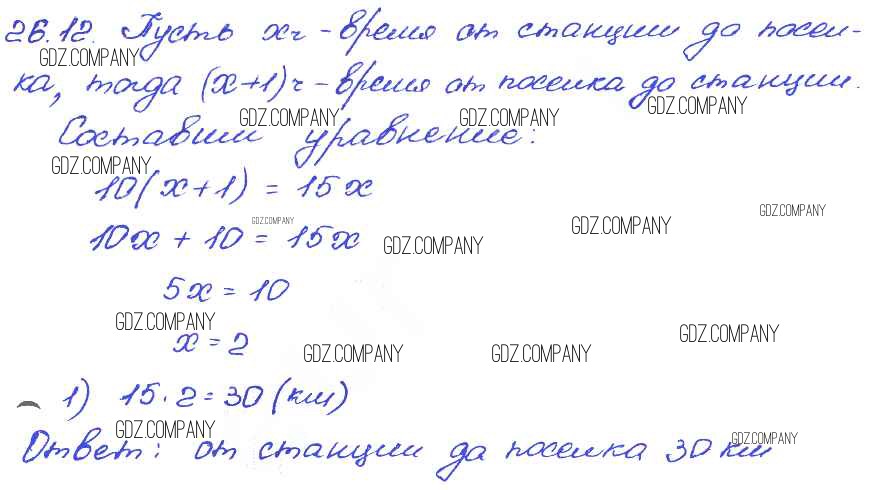 26.12. Пусть x ч - время от станции до посел-
GDZ.COMPANY
ка, тогда (x+1) ч - время от поселка до станции.
GDZ.COMPANY GDZ.COMPANY GDZ.COMPANY
Составим уравнение:
GDZ.COMPANY
10(x+1) = 15x
GDZ.COMPANY GDZ.COMPANY GDZ.COMPANY
10x + 10 = 15x GDZ.COMPANY
5x = 10
GDZ.COMPANY
x = 2 GDZ.COMPANY GDZ.COMPANY GDZ.COMPANY
1) 15 · 2 = 30 (км)
GDZ.COMPANY GDZ.COMPANY
Ответ: от станции до поселка 30 км